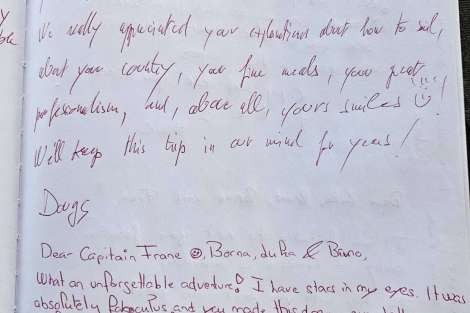 We really appreciated your explanations about how to sail,
about your country, your fine meals, your great
professionalism, and, above all, yours smiles !
We'll keep this trip in our mind for years !
Dear Capitain Frane , Borna, & Bruno,
What an unforgettable adventure! I have stars in my eyes. It was
absolutely and you made this